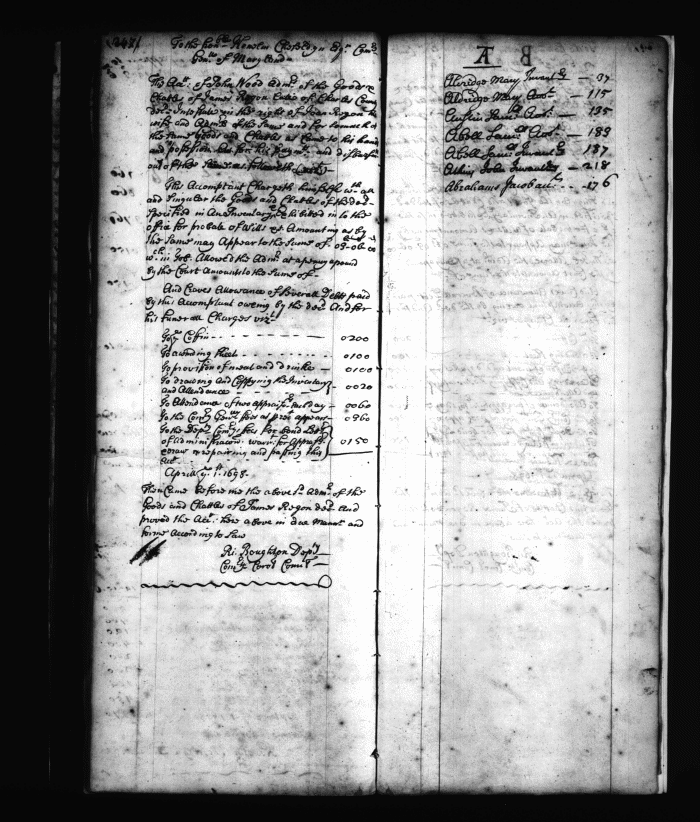 (248)
To the hon.ble Kenelm Cheseldyn Esq.r Com.ry
Gen.ll of Maryland
The Acc.t of John Wood Adm.r of the Goods &
Chattles of James Rogon Late of Charles County
dec.d Intestate in the right of Joan Rogon his
wife and Adm.rx of the same and for so much of
the same Goods and Chattles as Came to his hands
and possession and for his paym.ts and disbursm.ts
out of the same as followeth (viz.t)
This Accomptant Chargeth himselfe w.th all
and singular the Goods and Chattles of the ded.
specified in An Inventary Exhibited in to the
office for probate of Wills &c Amounting as by
the same may Appear to the sume of 03-06-00
w.ch in Tob. Allowed the Adm.r at a penny a pound
by the Court Amounts to the sume of
And Craves Allowance of severall Debts paid
by this Accomptant oweing by the dec.d And for
his funerall Charges viz.t
To y.e Coffin 0200
To a winding sheet 0100
To provision of meat and drinke 0100
To drawing and Coppying the Inventary
and Attendance 0020
To Attendance of two appraisr.s one day 0060
To the Com.ry Gen.lls fees as p.r acc.t appears 0360
To the Dep.ty Com.rys fees for bond Letters
of Administracon warr.t for Apprais.t
draw.g repairing and passing this
Acc.t 0150
Aprill y.e 1.st 1698
Then Came before me the aboves.d Adm.r of the
Goods and Chattles of James Rogon ded. and
proved the Acc.t here above in due Maner and
forme According to Law
Ri. Boughton Dep.ty
Com.ry Coro.d Com.t
B A
Aldridge Mary Invent.ry — 37
Aldridge Mary Acc.t — 115
Austin Sam.ll Acc.t — 135
Abbott Sam.ll Acc.t — 183
Abbott Sam.ll Invent.ry — 187
Atkey John Inventary — 218
Abrahams Jacob acc.t — 176